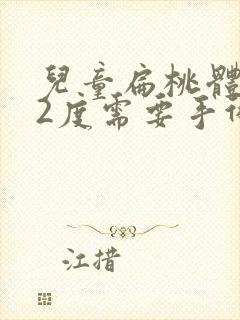 兒童扁桃體
2度需要手
江措